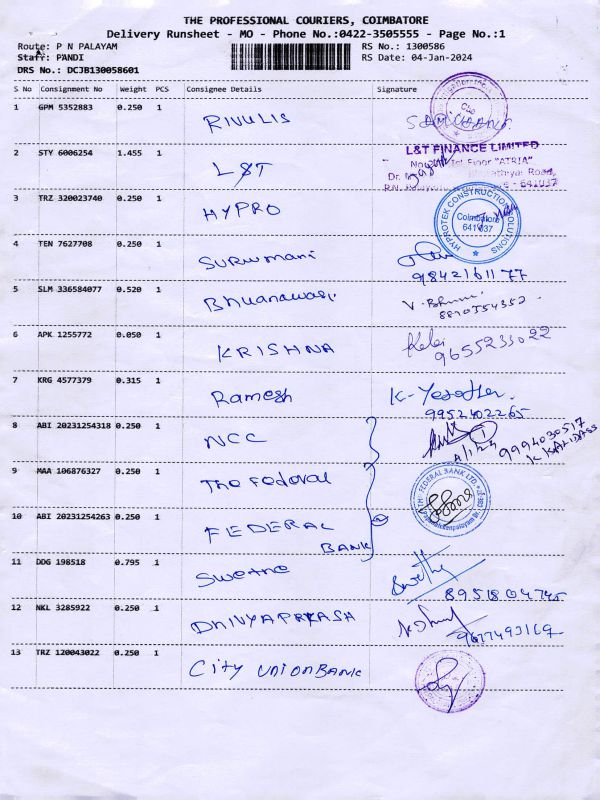 THE PROFESSIONAL COURIERS, COIMBATORE
Delivery Runsheet - MO - Phone No.:0422-3505555 - Page No.:1
Route: P N PALAYAM RS No.: 1300586
Staff: PANDI RS Date: 04-Jan-2024
DRS No.: DCJB130058601
S No Consignment No Weight PCS Consignee Details Signature
1 GPM 5352883 0.250 1 RIVULIS
2 STY 6006254 1.455 1 L&T
L&T FINANCE LIMITED
Floor "ATRIA"
Dr. Road,
641037
3 TRZ 320023740 0.250 1 HYPRO
HYPROTEK CONSTRUCTION SOLUTIONS
Coimbatore
641037
4 TEN 7627708 0.250 1 SURUMANI
9842161177
5 SLM 336584077 0.520 1 Bhuanawasi
6 APK 1255772 0.050 1 KRISHNA
9655233022
7 KRG 4577379 0.315 1 Ramesh
9952402265
8 ABI 20231254318 0.250 1 NCC
9994030517
K KALIDASS
9 MAA 106876327 0.250 1 The Federal
THE FEDERAL BANK LTD.
10 ABI 20231254263 0.250 1 FEDERAL
BANK
11 DDG 198518 0.795 1
8951804745
12 NKL 3285922 0.250 1 DHIVYAPRKASH
9677493169
13 TRZ 120043022 0.250 1 CITY UNION BANK